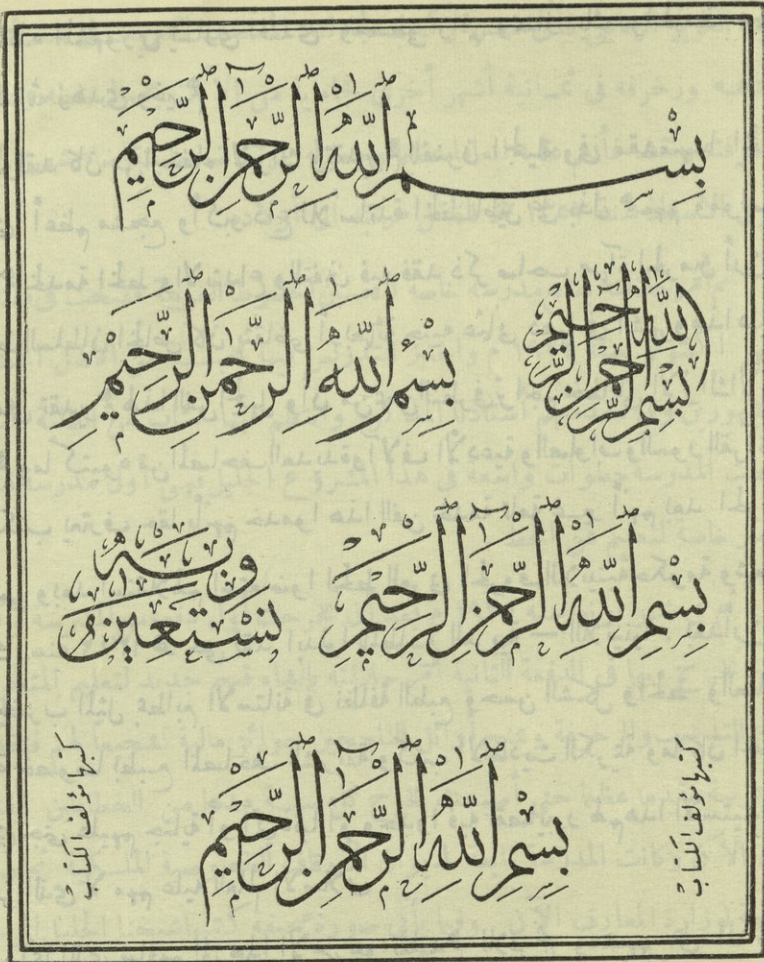 بِسْمِ اللّٰهِ الرَّحْمٰنِ الرَّحِيْمِ
بسم اللّٰه الرحمن الرحيم
بِسْمِ اللّٰهِ الرَّحْمٰنِ الرَّحِيْمِ
بِسْمِ اللّٰهِ الرَّحْمٰنِ الرَّحِيْمِ
وَبِهِ نَسْتَعِيْنُ
بِسْمِ اللّٰهِ الرَّحْمٰنِ الرَّحِيْمِ
كتبها مؤلف الكتاب
كتبها مؤلف الكتاب